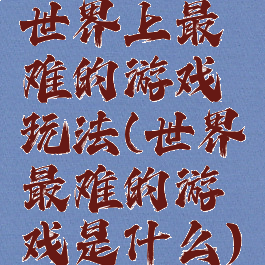 世界上最
难的游戏
玩法(世界
最难的游
戏是什么)